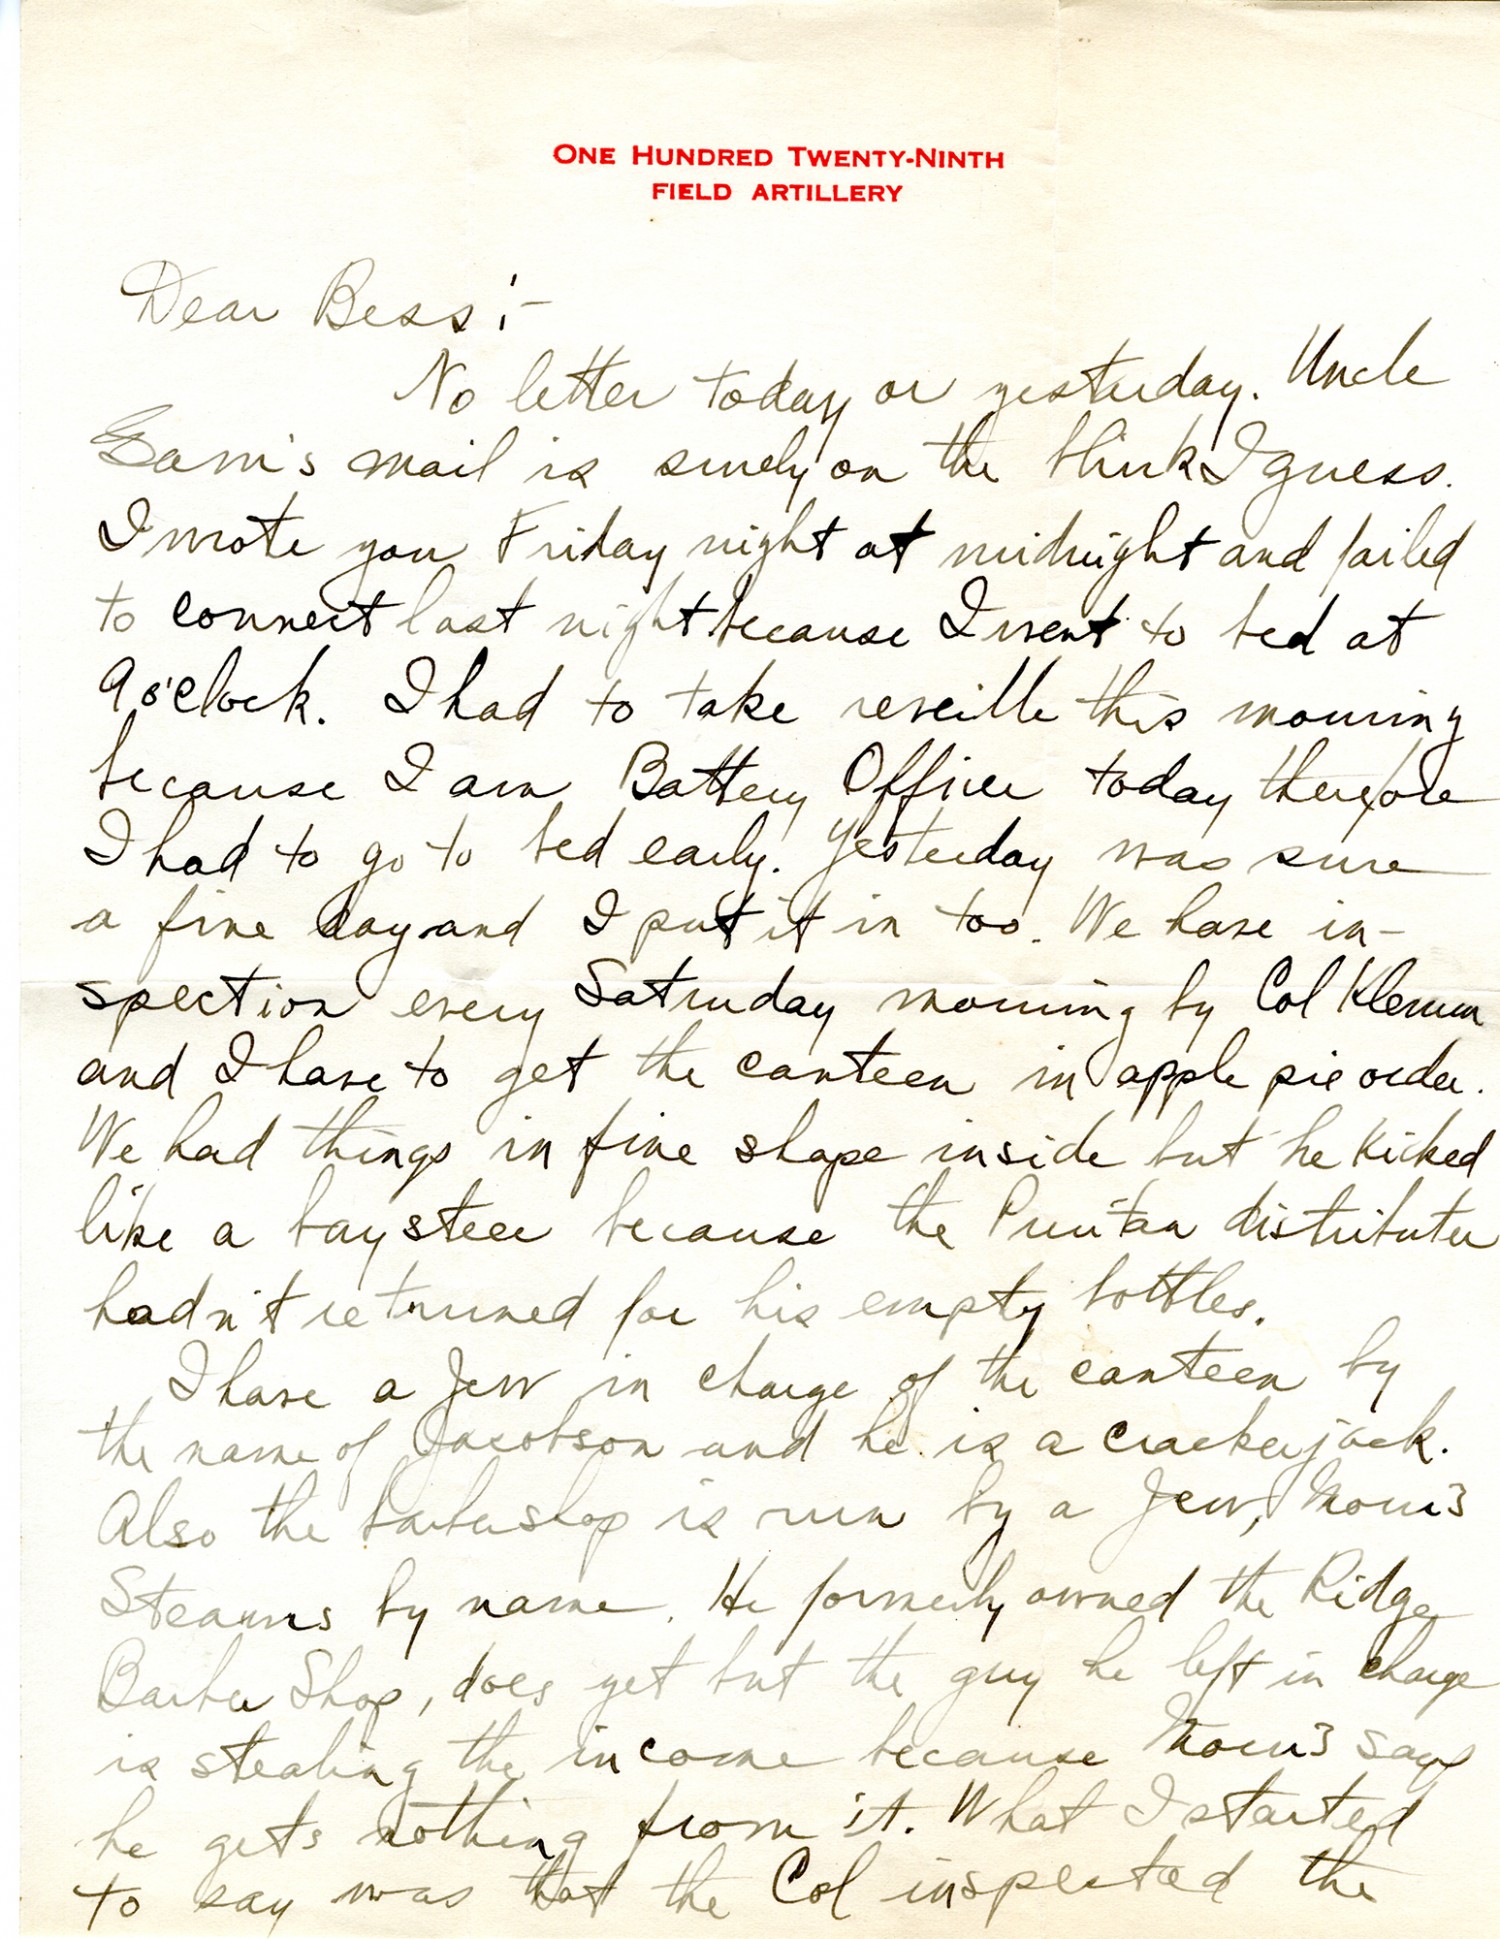 ONE HUNDRED TWENTY-NINTH
FIELD ARTILLERY
Dear Bess:-
No letter today or yesterday. Uncle
Sam's mail is surely on the blink I guess.
I wrote you Friday night at midnight and failed
to connect last night because I went to bed at
9 o'clock. I had to take reveille this morning
because I am Battery Officer today therefore
I had to go to bed early. Yesterday was sure
a fine day and I put it in too. We have in-
spection every Saturday morning by Col Klemm
and I have to get the canteen in apple pie order.
We had things in fine shape inside but he kicked
like a bay steer because the Puritan distributer
hadn't returned for his empty bottles.
I have a Jew in charge of the canteen by
the name of Jacobson and he is a crackerjack.
Also the barbershop is run by a Jew, Morris
Stearns by name. He formerly owned the Ridge
Barber Shop, does yet but the guy he left in charge
is stealing the income because Morris says
he gets nothing from it. What I started
to say was that the Col inspected the